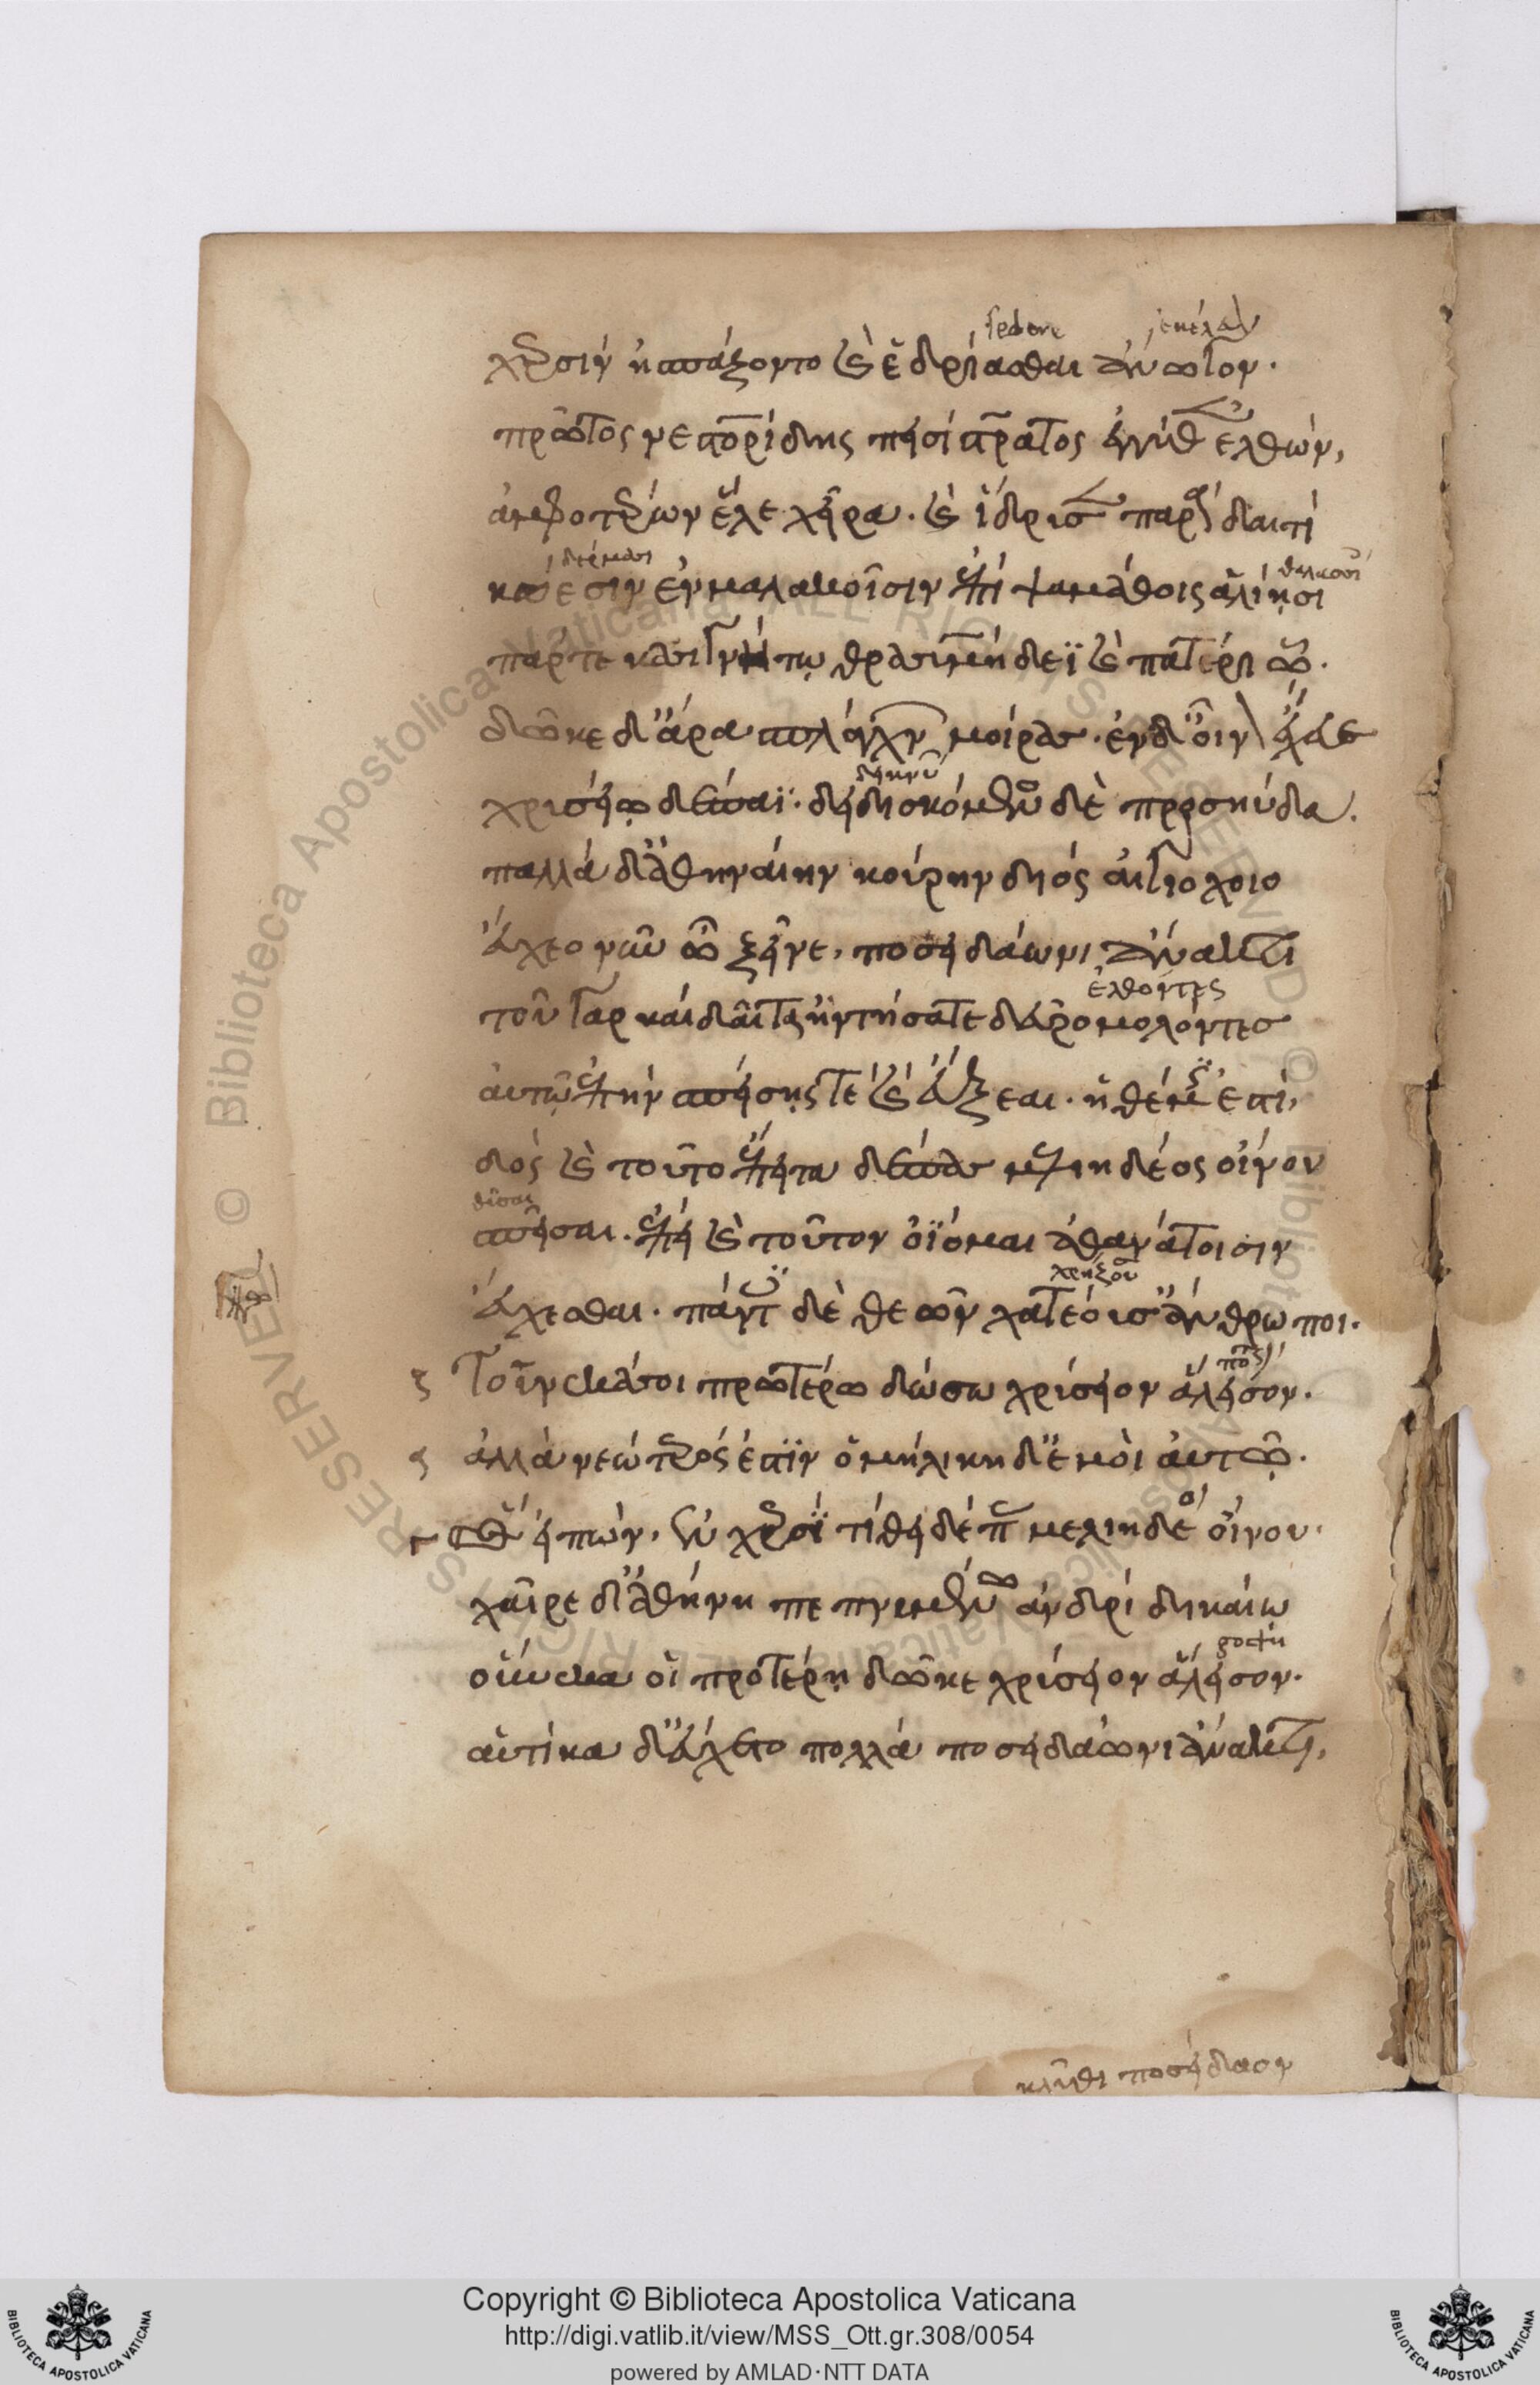 sedere ἐκέλευον
χερσίν ἠσπάζοντο καὶ ἑδριάασθαι ἄνωγον.
πρῶτος νεστορίδης πεισίστρατος ἐγγύθεν ἐλθών,
ἀμφοτέρων ἕλε χεῖρα. καὶ ἵδρυσεν παρὰ δαιτί
δέρμασι θαλασσίοις
κώεσιν ἐν μαλακοῖσιν ἐπί ψαμάθοις ἁλίῃσι
πάρ τε κασιγνήτῳ θρασυμήδεϊ καὶ πατέρι ᾧ.
δῶκε δ' ἄρα σπλάγχνων μοίρας. ἐν δ' οἶνον ἔχευε
χρυσείῳ δέπαϊ. δειδισκόμενος δὲ προσηύδα.
παλλάδ' ἀθηναίην κούρην διός αἰγιόχοιο
ἔυχεο νῦν ὦ ξεῖνε, ποσειδάωνι ἄνακτι
ἐλθόντες
τοῦ γαρ καί δαίτης ἠντήσατε δεῦρο μολόντεσ
αὐτὰρ ἐπήν σπείσῃς τέ καὶ ἔυξεαι. ἣ θέμις ἐστί,
δός καὶ τοῦτο ἔπειτα δέπας μελιηδέος οἴνου
σπεῖσαι. ἐπεί καὶ τοῦτον ὀΐομαι ἀθανάτοισιν
χρήζουσι
ἔυχεσθαι. πάντες δὲ θεῶν χατέουσ' ἄνθρωποι.
Τοὔνεκά τοι προτέρῳ δώσω χρύσειον ἄλεισον.
ἀλλά νεώτερός ἐστϊν ὁμηλικίη δ' ἐμοὶ αὐτῷ.
Ὣς εἰπών, ἐν χερσί τίθει δέπας μελιηδέος οἴνου.
χαῖρε δ' ἀθήνη πεπνυμένῳ ἀνδρί δικαίῳ
ποτήριον
οὕνεκα οἷ προτέρῃ δῶκε χρύσειον ἄλεισον.
αὐτίκα δ' εὔχετο πολλά ποσειδάωνι ἄνακτι,
κλῦθι ποσείδαον
Copyright © Biblioteca Apostolica Vaticana
http://digi.vatlib.it/view/MSS_Ott.gr.308/0054
powered by AMLAD·NTT DATA